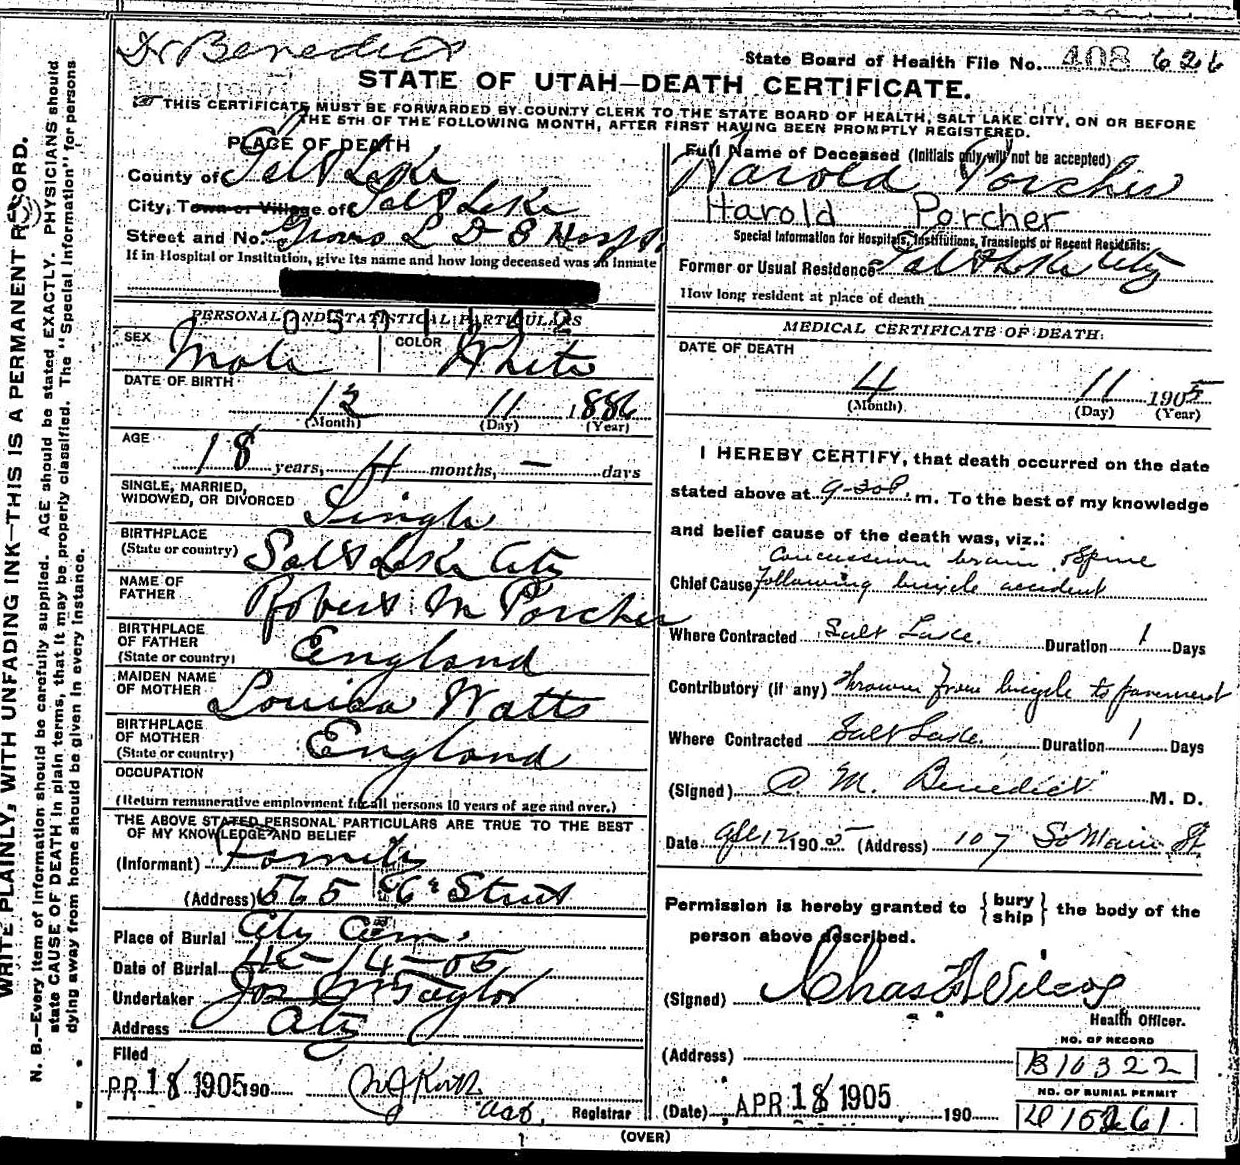 Dr Benedict
State Board of Health File No. 408 626
STATE OF UTAH—DEATH CERTIFICATE.
THIS CERTIFICATE MUST BE FORWARDED BY COUNTY CLERK TO THE STATE BOARD OF HEALTH, SALT LAKE CITY, ON OR BEFORE
THE 5TH OF THE FOLLOWING MONTH, AFTER FIRST HAVING BEEN PROMPTLY REGISTERED.
WRITE PLAINLY, WITH UNFADING INK—THIS IS A PERMANENT RECORD.
N. B.—Every item of information should be carefully supplied. AGE should be stated EXACTLY. PHYSICIANS should
state CAUSE OF DEATH in plain terms, that it may be properly classified. The "Special Information" for persons
dying away from home should be given in every instance.
PLACE OF DEATH
County of Salt Lake
City, Town or Village of Salt Lake
Street and No. Groves L D S Hosp
If in Hospital or Institution, give its name and how long deceased was an inmate
PERSONAL AND STATISTICAL PARTICULARS
SEX Male COLOR White
DATE OF BIRTH
12 11 1886
(Month) (Day) (Year)
AGE
18 years, 4 months, — days
SINGLE, MARRIED,
WIDOWED, OR DIVORCED Single
BIRTHPLACE
(State or country) Salt Lake City
NAME OF
FATHER Robert M Porcher
BIRTHPLACE
OF FATHER
(State or country) England
MAIDEN NAME
OF MOTHER Louisa Watts
BIRTHPLACE
OF MOTHER
(State or country) England
OCCUPATION
(Return remunerative employment for all persons 10 years of age and over.)
THE ABOVE STATED PERSONAL PARTICULARS ARE TRUE TO THE BEST
OF MY KNOWLEDGE AND BELIEF
(Informant) Family
(Address) 565 6th Street
Place of Burial City Cem.
Date of Burial 4-14-05
Undertaker Jos Wm Taylor
Address City
Filed
APR 18 1905 190
Registrar
Full Name of Deceased (Initials only will not be accepted)
Harold Porcher
Harold Porcher
Special Information for Hospitals, Institutions, Transients or Recent Residents:
Former or Usual Residence Salt Lake City
How long resident at place of death
MEDICAL CERTIFICATE OF DEATH.
DATE OF DEATH
4 11 1905
(Month) (Day) (Year)
I HEREBY CERTIFY, that death occurred on the date
stated above at 9-30 P. m. To the best of my knowledge
and belief cause of the death was, viz.:
Concussion brain & Spine
Chief Cause following bicycle accident
Where Contracted Salt Lake. Duration 1 Days
Contributory (if any) Thrown from bicycle to pavement
Where Contracted Salt Lake. Duration 1 Days
(Signed) C. M. Benedict M. D.
Date Apl 12 1905 (Address) 107 So Main St.
Permission is hereby granted to {bury ship} the body of the
person above described.
(Signed) Chas F Wilcox
Health Officer.
(Address)
NO. OF RECORD
B10322
NO. OF BURIAL PERMIT
(Date) APR 18 1905 190
(OVER)